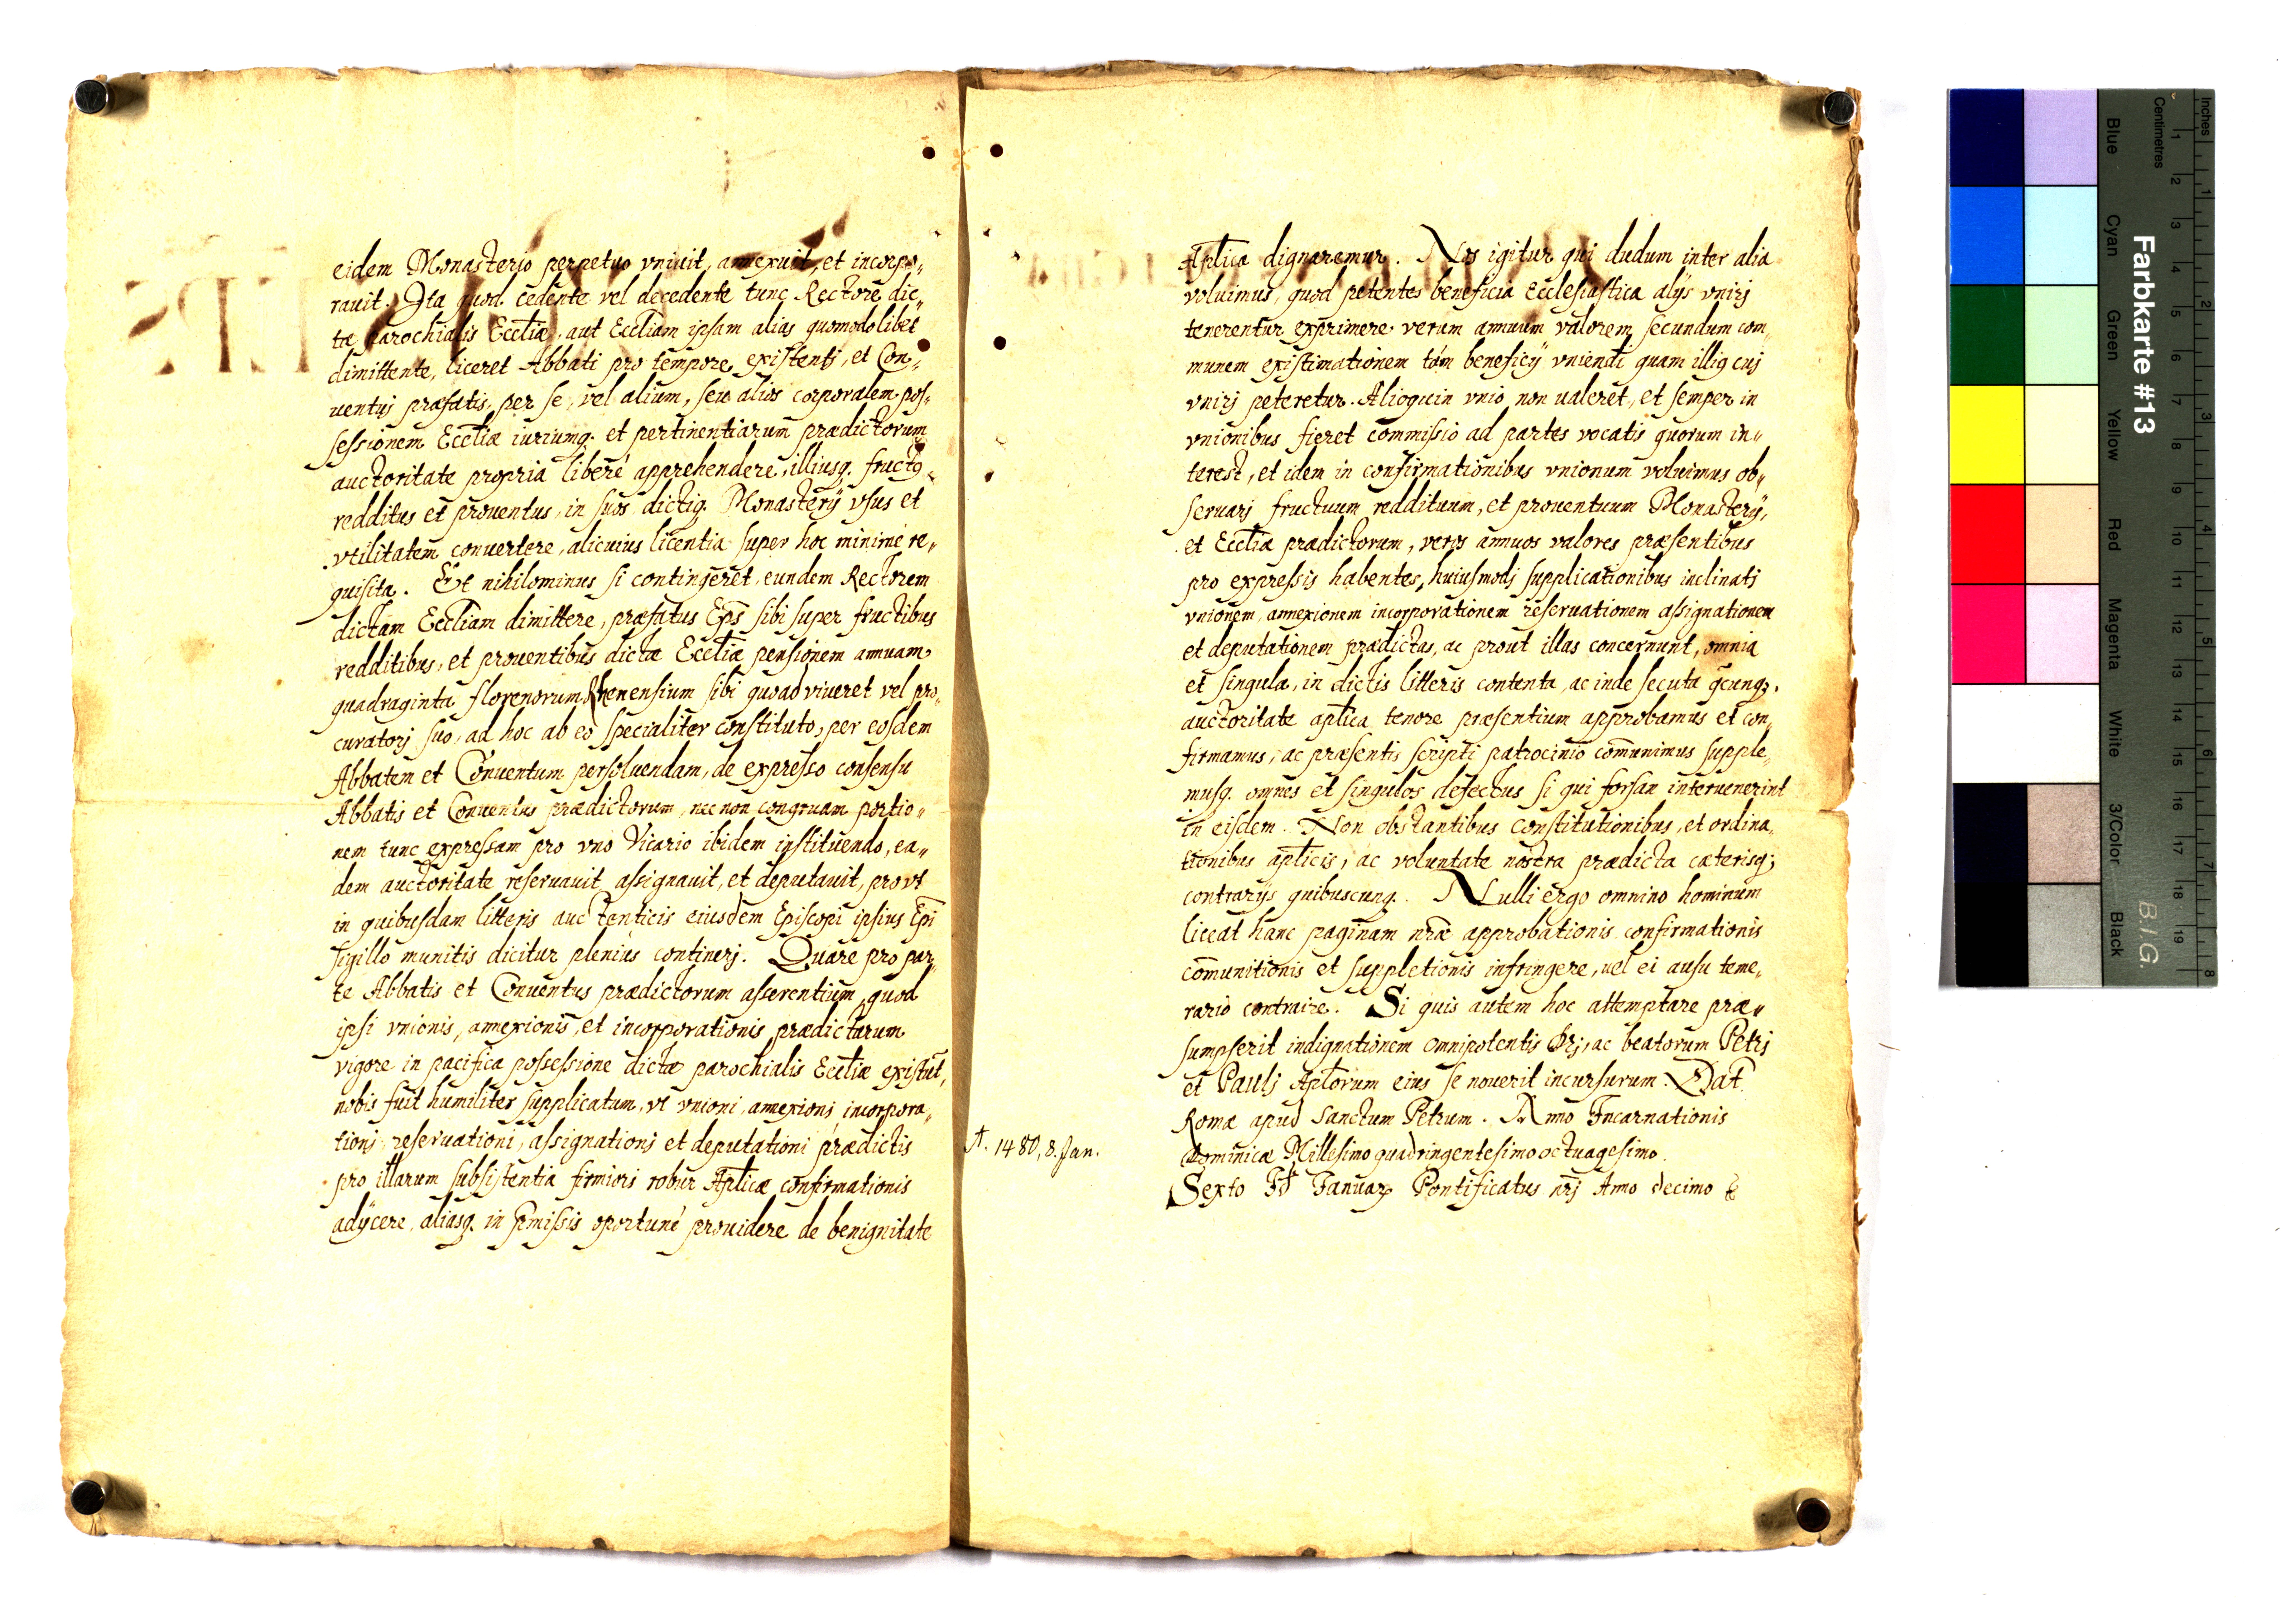 eidem Monasterio perpetuo vniuit, annexuit, et incorpo„
rauit. Ita quod cedente vel decedente tunc Rectore dic„
tæ parochialis Eccliæ, aut Eccliam ipsam alias quomodolibet
dimittente, liceret Abbati pro tempore existentj, et Con„
uentuj præfatis, per se, vel alium, seu alios corporalem pos„
sessionem Eccliæ iuriumq. et pertinentiarum prædictorum
auctoritate propria liberé apprehendere, illiusq. fructq
redditus et prouentus, in suos dictiq. Monasterÿ vsus et
vtilitatem conuertere, alicuius licentia super hoc minimé re„
quisita. Et nihilominus si contingeret, eundem Rectorem
dictam Eccliam dimittere, præfatus Eps̄ sibi super fructibus
redditibus, et prouentibus dictæ Eccliæ pensionem annuam
quadraginta florenorum Rhenensium sibi quoad viueret vel pro„
curatorj suo, ad hoc ab eo specialiter constituto, per eosdem
Abbatem et Conuentum persoluendam, de expresso consensu
Abbatis et Conuentus prædictorum, nec non congruam portio„
nem tunc expressam pro vno Vicario ibidem instituendo, ea„
dem auctoritate reseruauit, assignauit, et deputauit, pro vt
in quibusdam litteris auctenticis eiusdem Episcopi ipsius Epī
sigillo munitis dicitur pleniùs continerj. Quare pro par„
te Abbatis et Conuentus prædictorum asserentium, quod
ipsi vnionis, annexionis, et incorporationis prædictarum
vigore in pacifica possessione dictæ parochialis Eccliæ existūt,
nobis fuit humiliter supplicatum, vt vnioni, annexioni incorpora„
tionj reseruationi, assignationj et deputationi prædictis
pro illarum subsistentia firmiori robur Aplicæ confirmationis
adÿcere, aliasq. in p̄missis oportuné prouidere de benignitate
Aplica dignaremur. Nos igitur qui dudum inter alia
voluimus, quod petentes beneficia Ecclesiastica alÿs vnirj
tenerentur exprimere verum annuum valorem secundum com„
munem existimationem tám beneficÿ vniendi quam illiq cuj
vnirj peteretur. Alioquin vnio non ualeret, et semper in
vnionibus fieret commissio ad partes vocatis quorum in„
terest, et idem in confirmationibus vnionum voluimus ob„
seruarj fructuum reddituum, et prouentuum Monasterÿ,
et Eccliæ prædictorum, veros annuos valores præsentibus
pro expressis habentes, huiusmodj supplicationibus inclinatj
vnionem, annexionem incorporationem reseruationem assignationem
et deputationem prædictas, ac prout illas concernunt, omnia
et singula, in dictis litteris contenta, ac inde secuta q̄cunq.
auctoritate aplica tenore præsentium approbamus et con„
firmamus, ac præsentis scripti patrocinio com̄unimus supple„
musq. omnes et singulos defectus si qui forsan interuenerint
in eisdem. Non obstantibus constitutionibus, et ordina„
tionibus aplicis, ac voluntate nostra prædicta cæterisq;
contrarÿs quibuscunq. Nulli ergo omnino hominum
liceat hanc paginam nr̄æ approbationis confirmationis
com̄unitionis et suppletionis infringere, uel ei ausu teme„
rario contraire. Si quis autem hoc attemptare præ„
sumpserit indignationem omnipotentis Dej, ac beatorum Petrj
et Paulj Aplorum eius se nouerit incursurum. Dat.
Romæ apud sanctum Petrum. Anno Incarnationis
A. 1480, 8. Jan.
Dominicæ Millesimo quadringentesimo octuagesimo.
Sexto Id Januar Pontificatus nrj Anno decimo
Farbkarte #13
B.I.G.
Inches
Centimetres
1 2 3 4 5 6 7 8 9 10 11 12 13 14 15 16 17 18 19
1 2 3 4 5 6 7 8
Blue Cyan Green Yellow Red Magenta White 3/Color Black